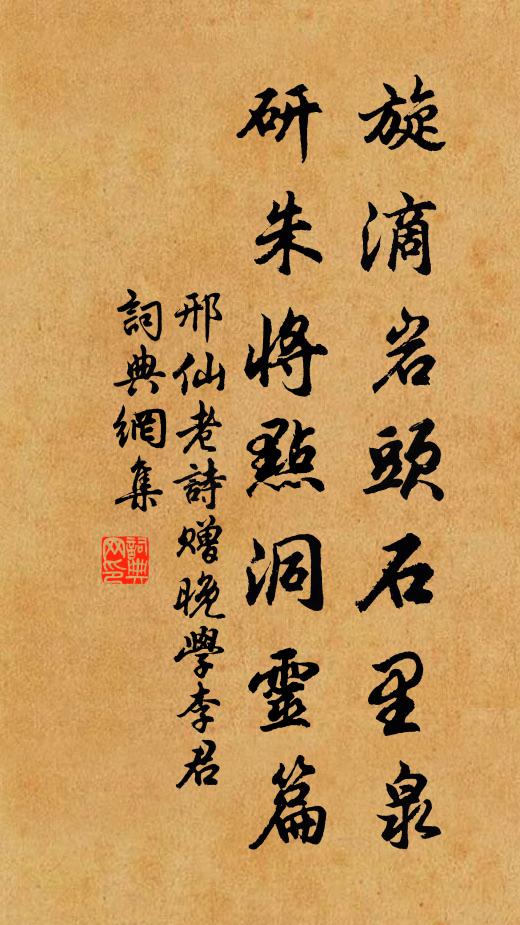 旋滴岩頭石里泉
研朱將點洞靈篇
邢仙老詩贈晚學李君
詞典網集
詞典網印